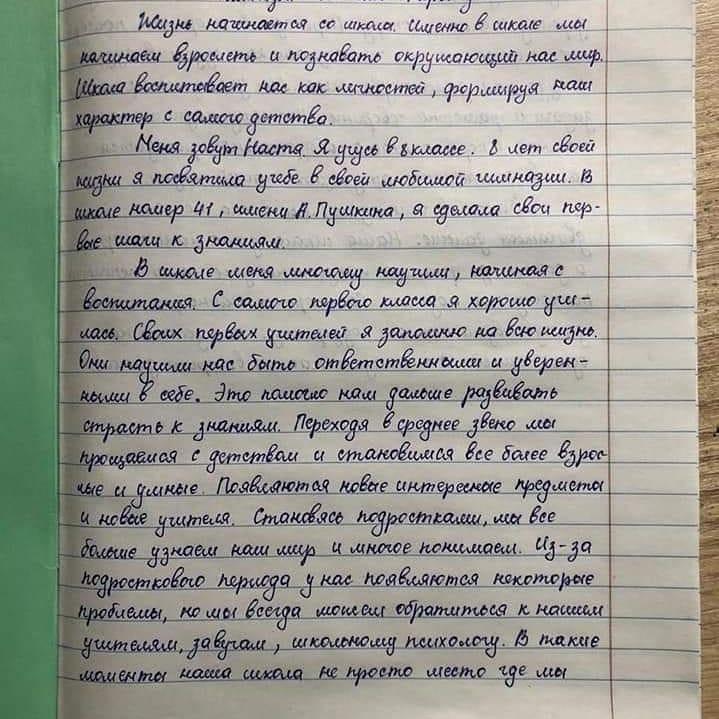 Жизнь начинается со школы. Именно в школе мы
начинаем взрослеть и познавать окружающий нас мир.
Школа воспитывает нас как личностей, формируя наш
характер с самого детства.
Меня зовут Настя. Я учусь в 8 классе. 8 лет своей
жизни я посвятила учебе в своей любимой гимназии. В
школе номер 41, имени А. Пушкина, я сделала свои пер-
вые шаги к знаниям.
В школе меня многому научили, начиная с
воспитания. С самого первого класса я хорошо учи-
лась. Своих первых учителей я запомню на всю жизнь.
Они научили нас быть ответственными и уверен-
ными в себе. Это помогло нам дальше развивать
страсть к знаниям. Переходя в среднее звено мы
прощаемся с детством и становимся все более взрос-
лые и умные. Появляются новые интересные предметы
и новые учителя. Становясь подростками, мы все
больше узнаем наш мир и многое понимаем. Из-за
подросткового периода у нас появляются некоторые
проблемы, но мы всегда можем обратиться к нашим
учителям, завучам, школьному психологу. В такие
моменты наша школа не просто место где мы